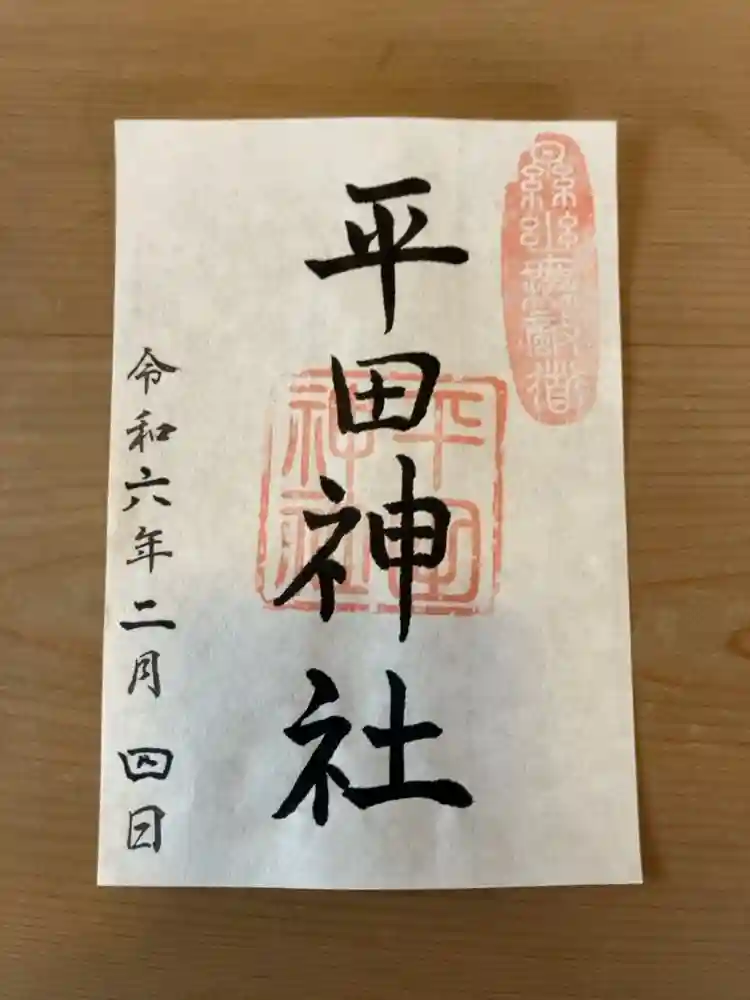 平田神社
平田
神社
令和六年二月四日